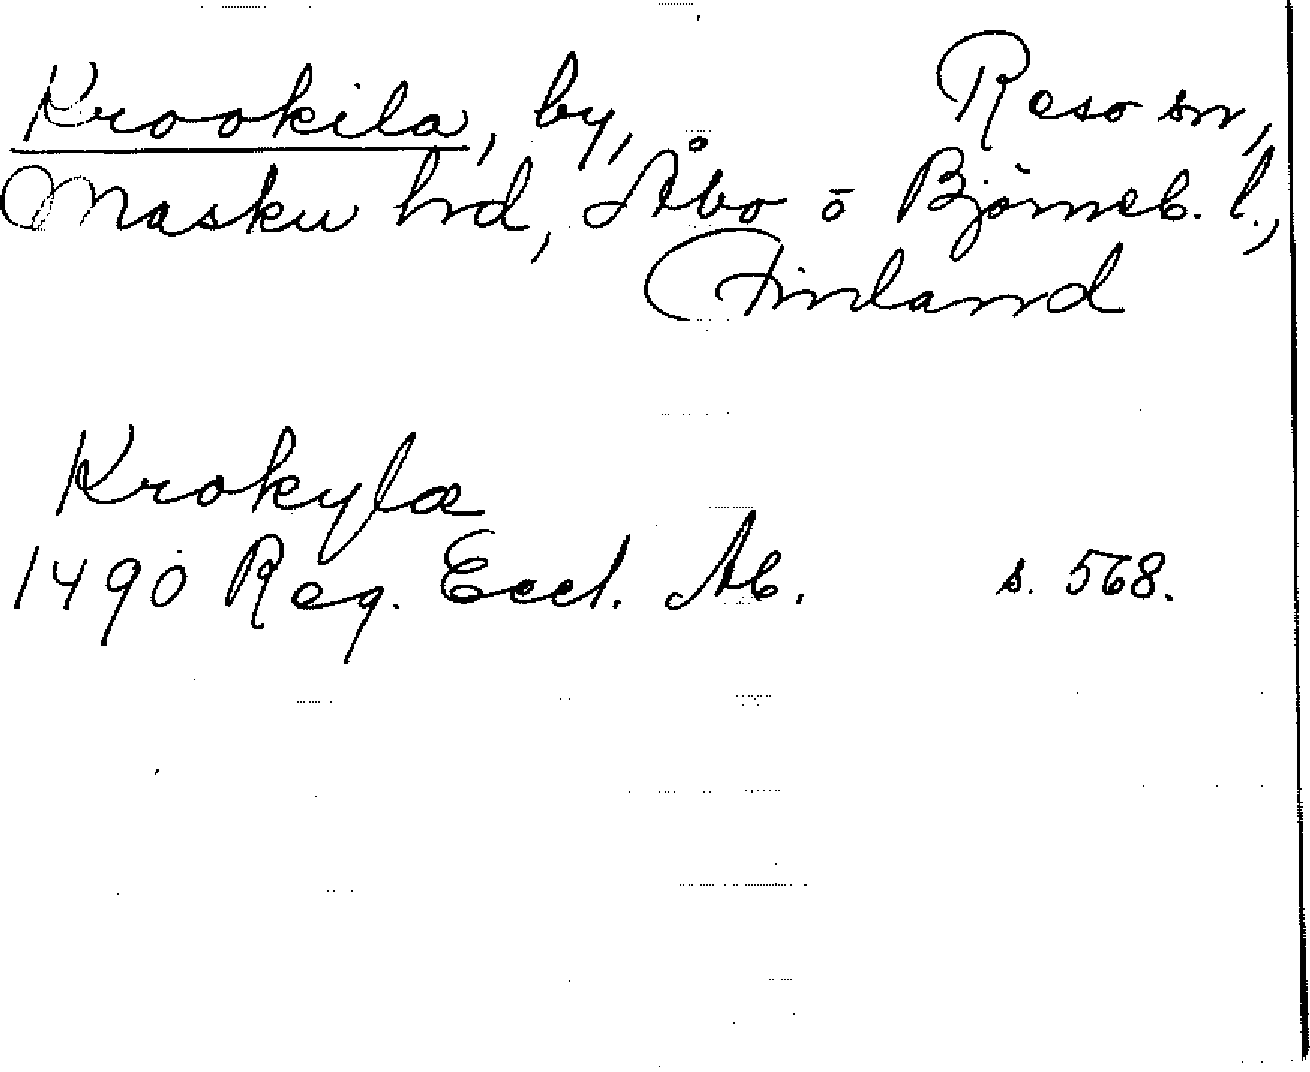 Krookila, by, Reso sn,
Masku hrd, Åbo ō Björneb. l.,
Finland
Krokylæ
1490 Reg. Eccl. Ab. s. 568.